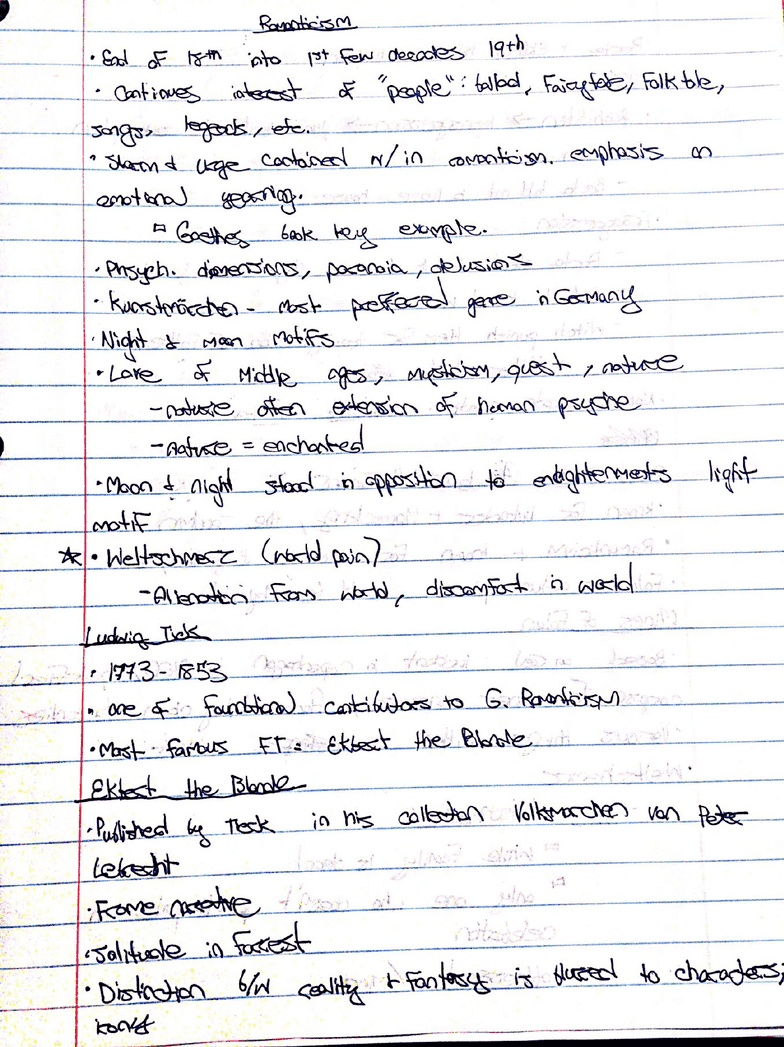 Romanticism
• End of 18th into 1st few decades 19th
• Continues interest of "people": ballad, Fairytale, Folk tale,
songs, legends, etc.
• Sturm & urge contained w/in romanticism. emphasis on
emotional yearning.
▫ Goethes book key example.
• Physch. dimensions, paranoia, delusions
• Kunstmärchen - most preffered genre in Germany
• Night & Moon Motifs
• Love of Middle ages, mysticism, quest, nature
- nature often extension of human psyche
- nature = enchanted
• Moon & night stood in opposition to enlightenments light
motif
★ • Weltschmerz (world pain)
- Alienation from world, discomfort in world
Ludwig Tick
• 1773-1853
• one of foundational contributors to G. Romanticism
• Most famous FT: Ekbert the Blonde
Ekbert the Blonde
• Published by Tieck in his collection Volksmarchen von Peter
Lebrecht
• Frame narrative
• Solitude in forrest
• Distinction b/w reality & Fantasy is blurred to characters;